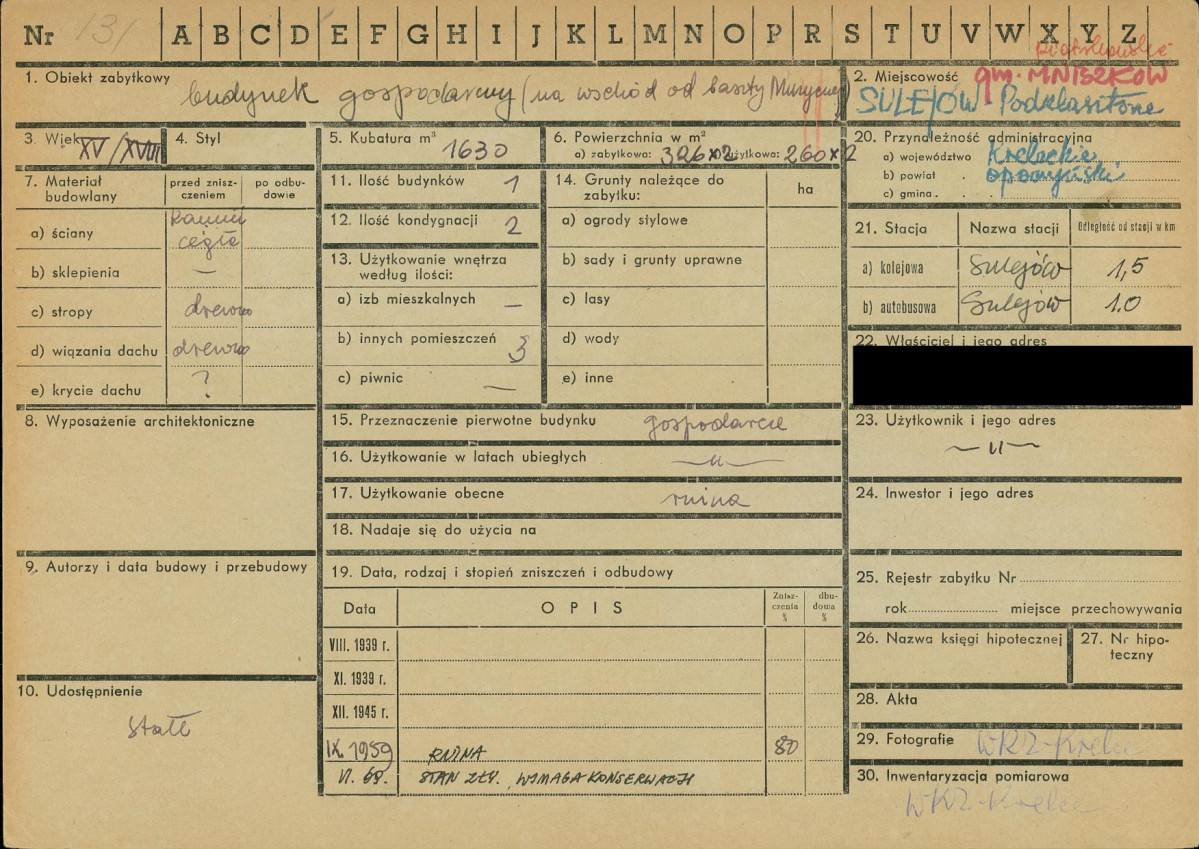 Nr 131 A B C D E F G H I J K L M N O P R S T U V W X Y Z
1. Obiekt zabytkowy
budynek gospodarczy (na wschód od baszty Muzycznej)
2. Miejscowość gm. MNISZKÓW
piotrkowskie
SULEJÓW Podklasztorze
3. Wiek XV/XVIII
4. Styl
5. Kubatura m³ 1630
6. Powierzchnia w m²
a) zabytkowa: 326x2 użytkowa: 260x2
7. Materiał budowlany
przed znisz-
czeniem
po odbu-
dowie
a) ściany kamień
cegła
b) sklepienia —
c) stropy drewno
d) wiązania dachu drewno
e) krycie dachu ?
8. Wyposażenie architektoniczne
9. Autorzy i data budowy i przebudowy
10. Udostępnienie
stałe
11. Ilość budynków 1
12. Ilość kondygnacji 2
13. Użytkowanie wnętrza
według ilości:
a) izb mieszkalnych —
b) innych pomieszczeń 3
c) piwnic —
14. Grunty należące do
zabytku:
ha
a) ogrody stylowe
b) sady i grunty uprawne
c) lasy
d) wody
e) inne
15. Przeznaczenie pierwotne budynku gospodarcze
16. Użytkowanie w latach ubiegłych —„—
17. Użytkowanie obecne ruina
18. Nadaje się do użycia na
19. Data, rodzaj i stopień zniszczeń i odbudowy
Data
OPIS
Znisz-
czenia
%
dbu-
dowa
%
VIII. 1939 r.
XI. 1939 r.
XII. 1945 r.
IX. 1959 RUINA 80
VI. 68. STAN ZŁY, WYMAGA KONSERWACJI
20. Przynależność administracyjna
a) województwo Kieleckie
b) powiat . opoczyński
c) gmina .
21. Stacja
Nazwa stacji
Odległość od stacji w km
a) kolejowa Sulejów 1,5
b) autobusowa Sulejów 1.0
22. Właściciel i jego adres
23. Użytkownik i jego adres
—„—
24. Inwestor i jego adres
25. Rejestr zabytku Nr
rok miejsce przechowywania
26. Nazwa księgi hipotecznej
27. Nr hipo-
teczny
28. Akta
29. Fotografie WKZ-Kielce
30. Inwentaryzacja pomiarowa
WKZ-Kielce